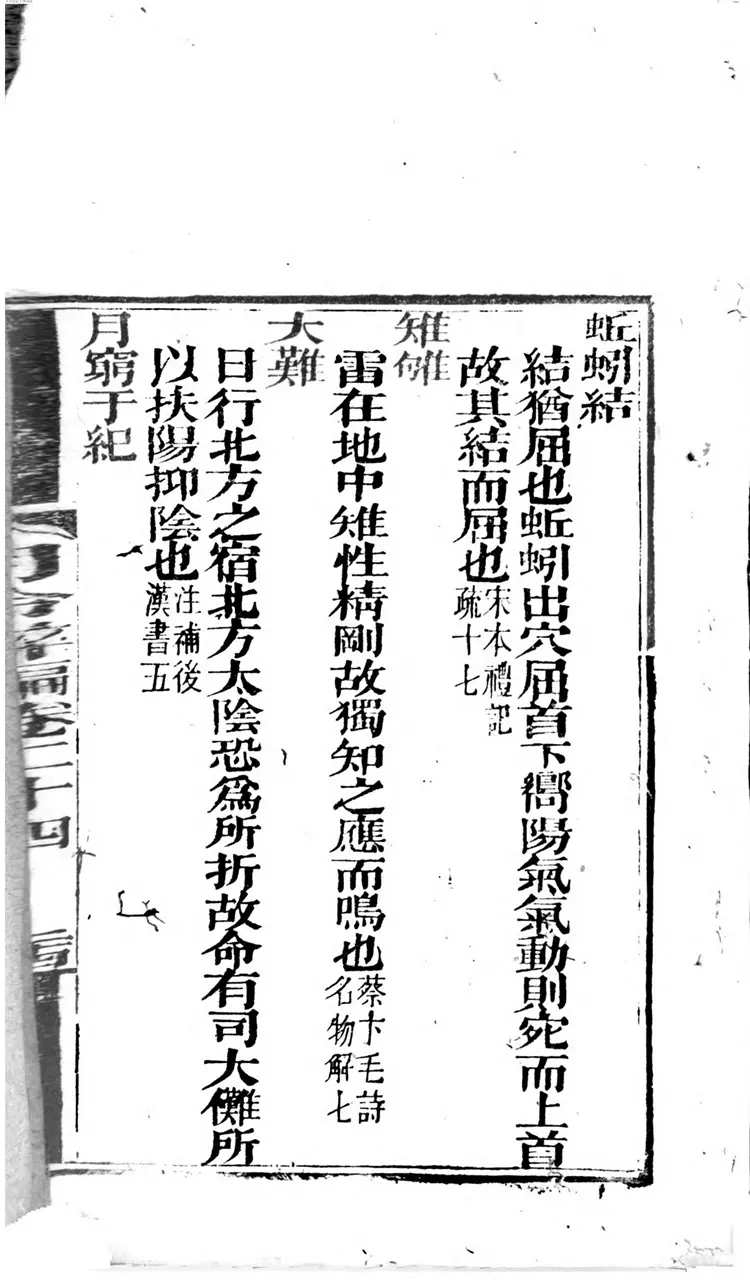 蚯蚓結
結猶屈也蚯蚓出穴屈首下嚮陽氣氣動則宛而上首
故其結而屈也宋本禮記
疏十七
雉雊
雷在地中雉性精剛故獨知之應而鳴也蔡卞毛詩
名物解七
大難
日行北方之宿北方太陰恐爲所折故命有司大儺所
以扶陽抑陰也注補後
漢書五
月窮于紀
月令
卷二十四